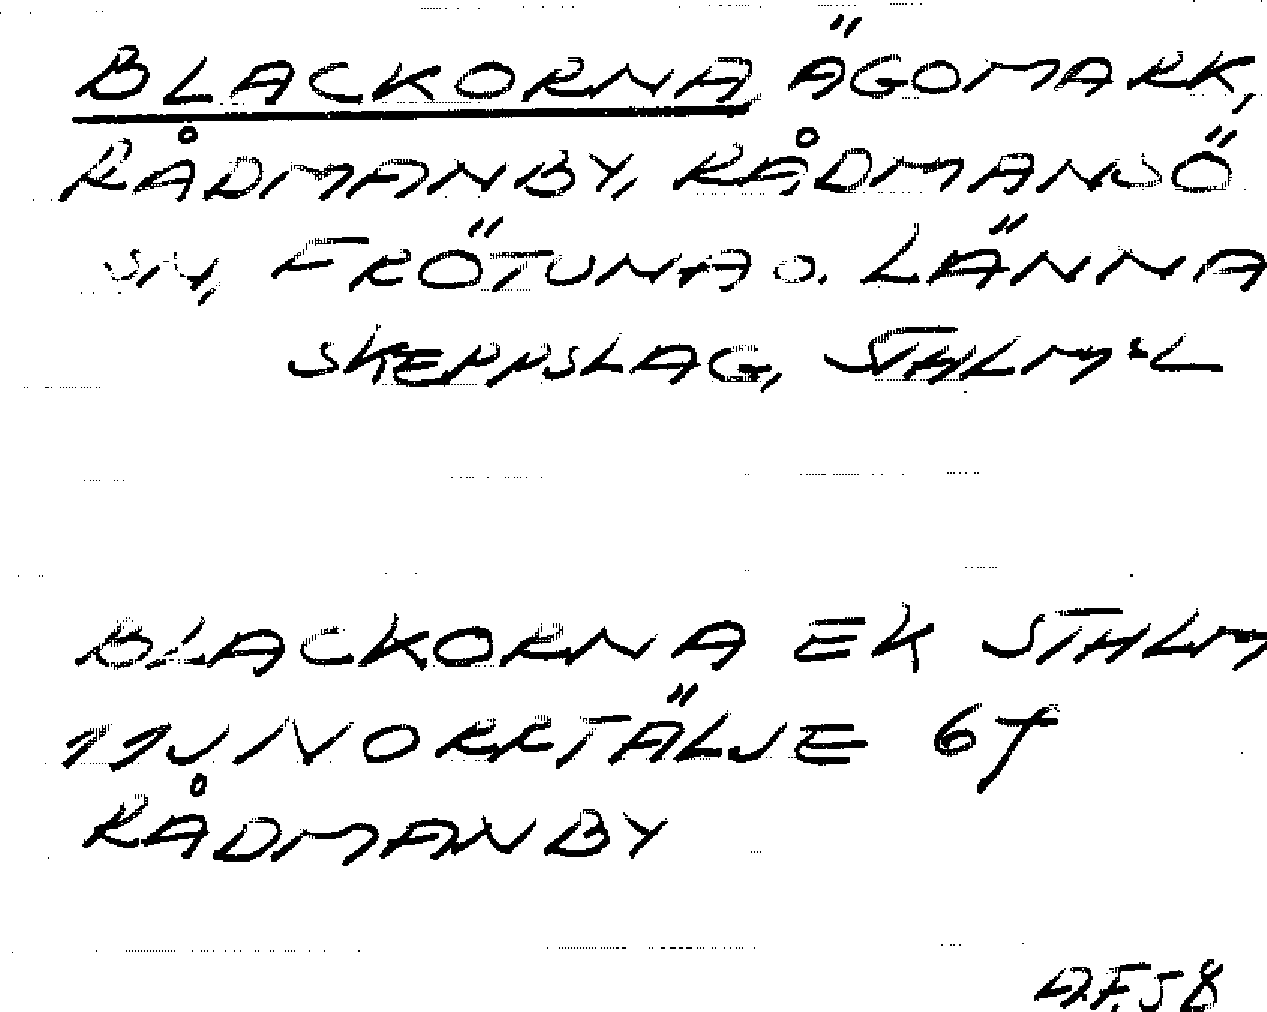 BLACKORNA ÄGOMARK,
RÅDMANBY, RÅDMANSÖ
SN, FRÖTUNA O. LÄNNA
SKEPPSLAG, STHLMSL
BLACKORNA EK STHLM
11J NORRTÄLJE 6f
RÅDMANBY